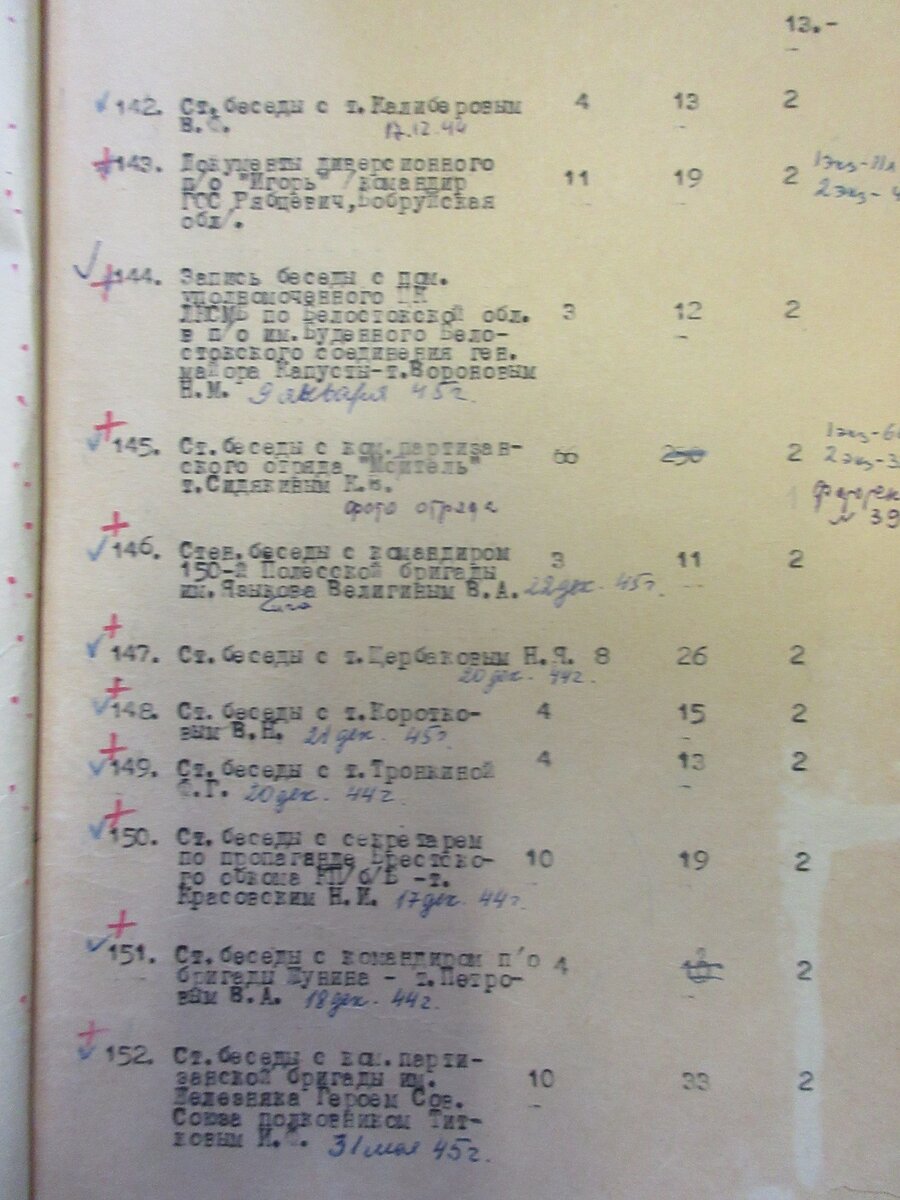 13.-
142. Ст.беседы с т.Калиберовым 4 13 2
В.С. 17.12.44
143. Документы диверсионного
п/о "Игорь" /командир 11 19 2 1экз-11л
ГСС Рябцевич,Бобруйская 2экз-4
обл/.
144. Запись беседы с пом.
уполномоченного ЦК
ЛКСМБ по Белостокской обл. 3 12 2
в п/о им.Буденного Бело-
стокского соединения ген.
майора Капусты-т.Вороновым
Н.М. 9 января 45г.
145. Ст.беседы с ком.партизан- 66 250 2 1экз-66
ского отряда "Мститель" 2экз-3
т.Сидякиным К.К.
фото отряда
№ 39
146. Стен.беседы с командиром 3 11 2
150-й Полесской бригады
им.Языкова Велигиным В.А. 22 дек. 45г.
147. Ст.беседы с т.Щербаковым Н.Я. 8 26 2
20 дек. 44г.
148. Ст.беседы с т.Коротко- 4 15 2
вым В.Н. 21 дек. 45г
149. Ст.беседы с т.Тронкиной 4 13 2
С.Г. 20 дек. 44г.
150. Ст.беседы с секретарем
по пропаганде Брестско- 10 19 2
го обкома КП/б/Б -т.
Красовским Н.И. 17 дек. 44г.
151. Ст.беседы с командиром п/о 4 2
бригады Лунина - т.Петро-
вым В.А. 18 дек. 44г.
152. Ст.беседы с ком.парти-
занской бригады им. 10 33 2
Железняка Героем Сов.
Союза полковником Тит-
ковым И.Ф. 31 мая 45г.